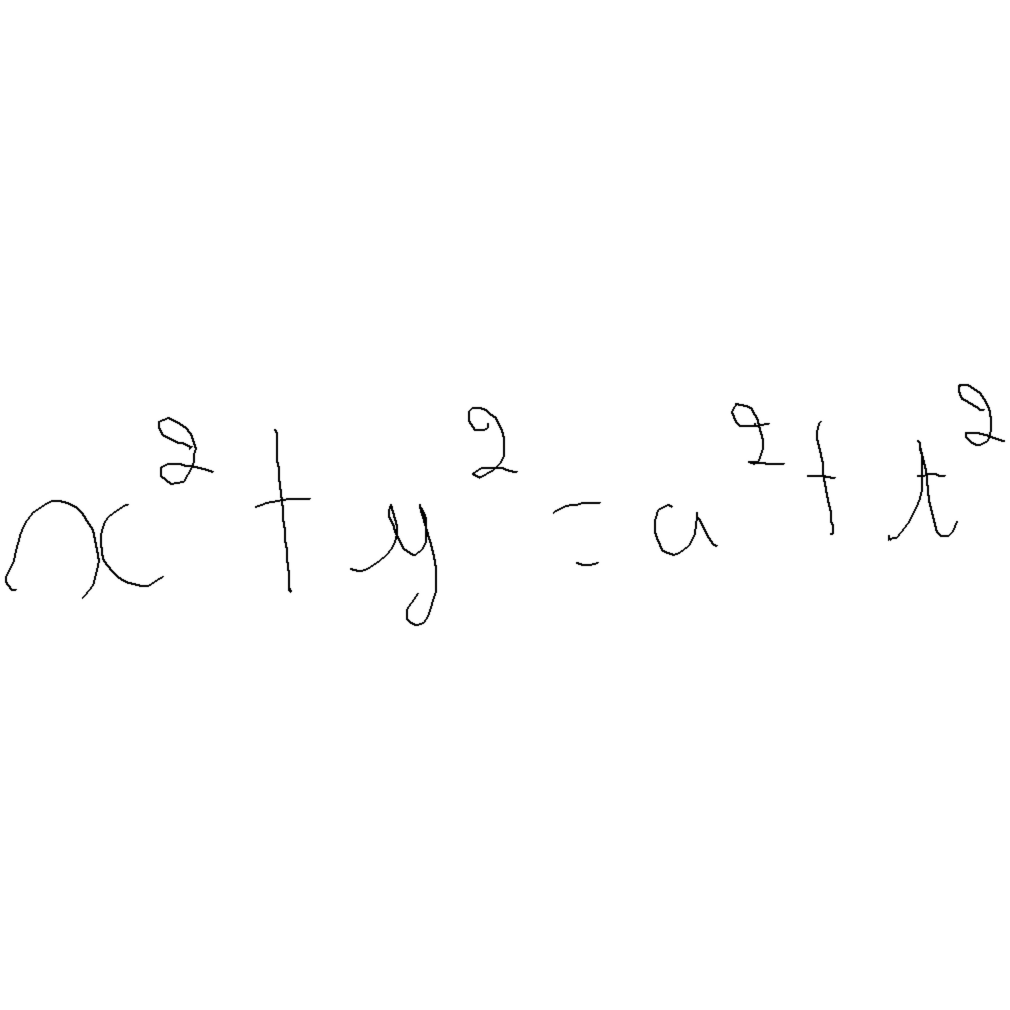 x² + y² = a² + t²